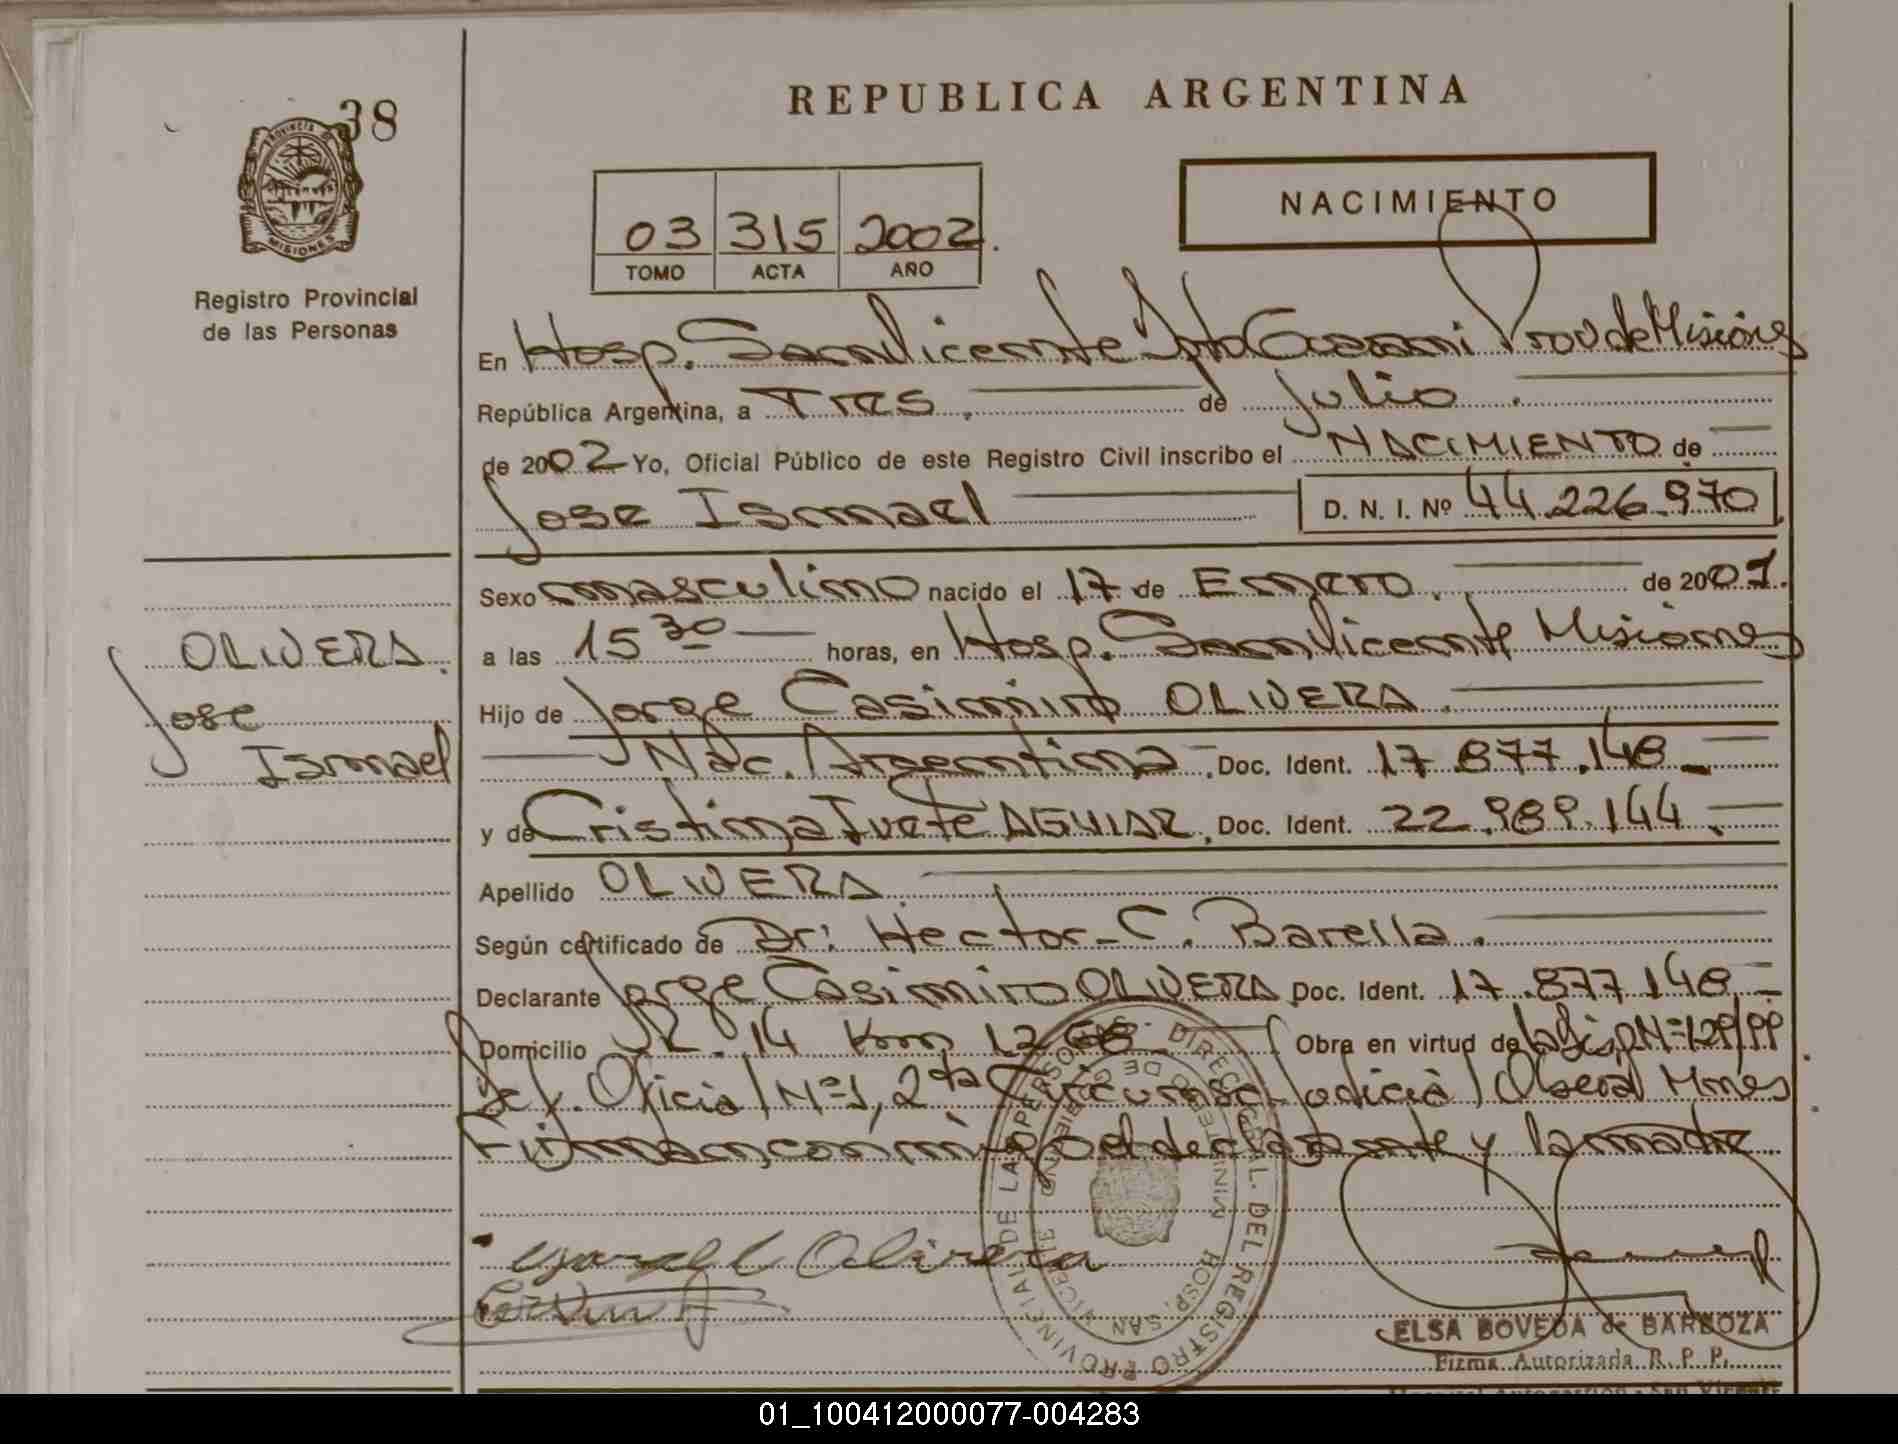 38
REPUBLICA ARGENTINA
PROVINCIA DE
MISIONES
Registro Provincial
de las Personas
NACIMIENTO
03 315 2002.
TOMO ACTA AÑO
En Hosp. San Vicente Dpto Guarani Prov de Misiones
República Argentina, a Tres. de Julio.
de 2002 Yo, Oficial Público de este Registro Civil inscribo el NACIMIENTO de
Jose Ismael D. N. I. Nº 44.226.970
Sexo masculino nacido el 17 de Enero. de 2001.
OLIVERA.
Jose
Ismael
a las 15 30 horas, en Hosp. San Vicente Misiones
Hijo de Jorge Casimiro OLIVERA.
Nac. Argentina. Doc. Ident. 17.877.148
y de Cristina Ivete AGUIAR. Doc. Ident. 22.989.144.
Apellido OLIVERA
Según certificado de Dr: Hector C. Barella.
Declarante Jorge Casimiro OLIVERA Doc. Ident. 17.877.148
Domicilio R. 14 Km 1268 Obra en virtud de la Disp Nº 129/99
Def. Oficial Nº 1, 2da Circunsc. Judicial Oberá Mnes
Firman conmigo el declarante y la madre.
Olivera
REGISTRO PROVINCIAL DE LAS PERSONAS
DIREC. GRAL. DEL
HOSP. SAN VICENTE
ELSA BOVEDA de BARBOZA
Firma Autorizada R. P. P.
01_100412000077-004283